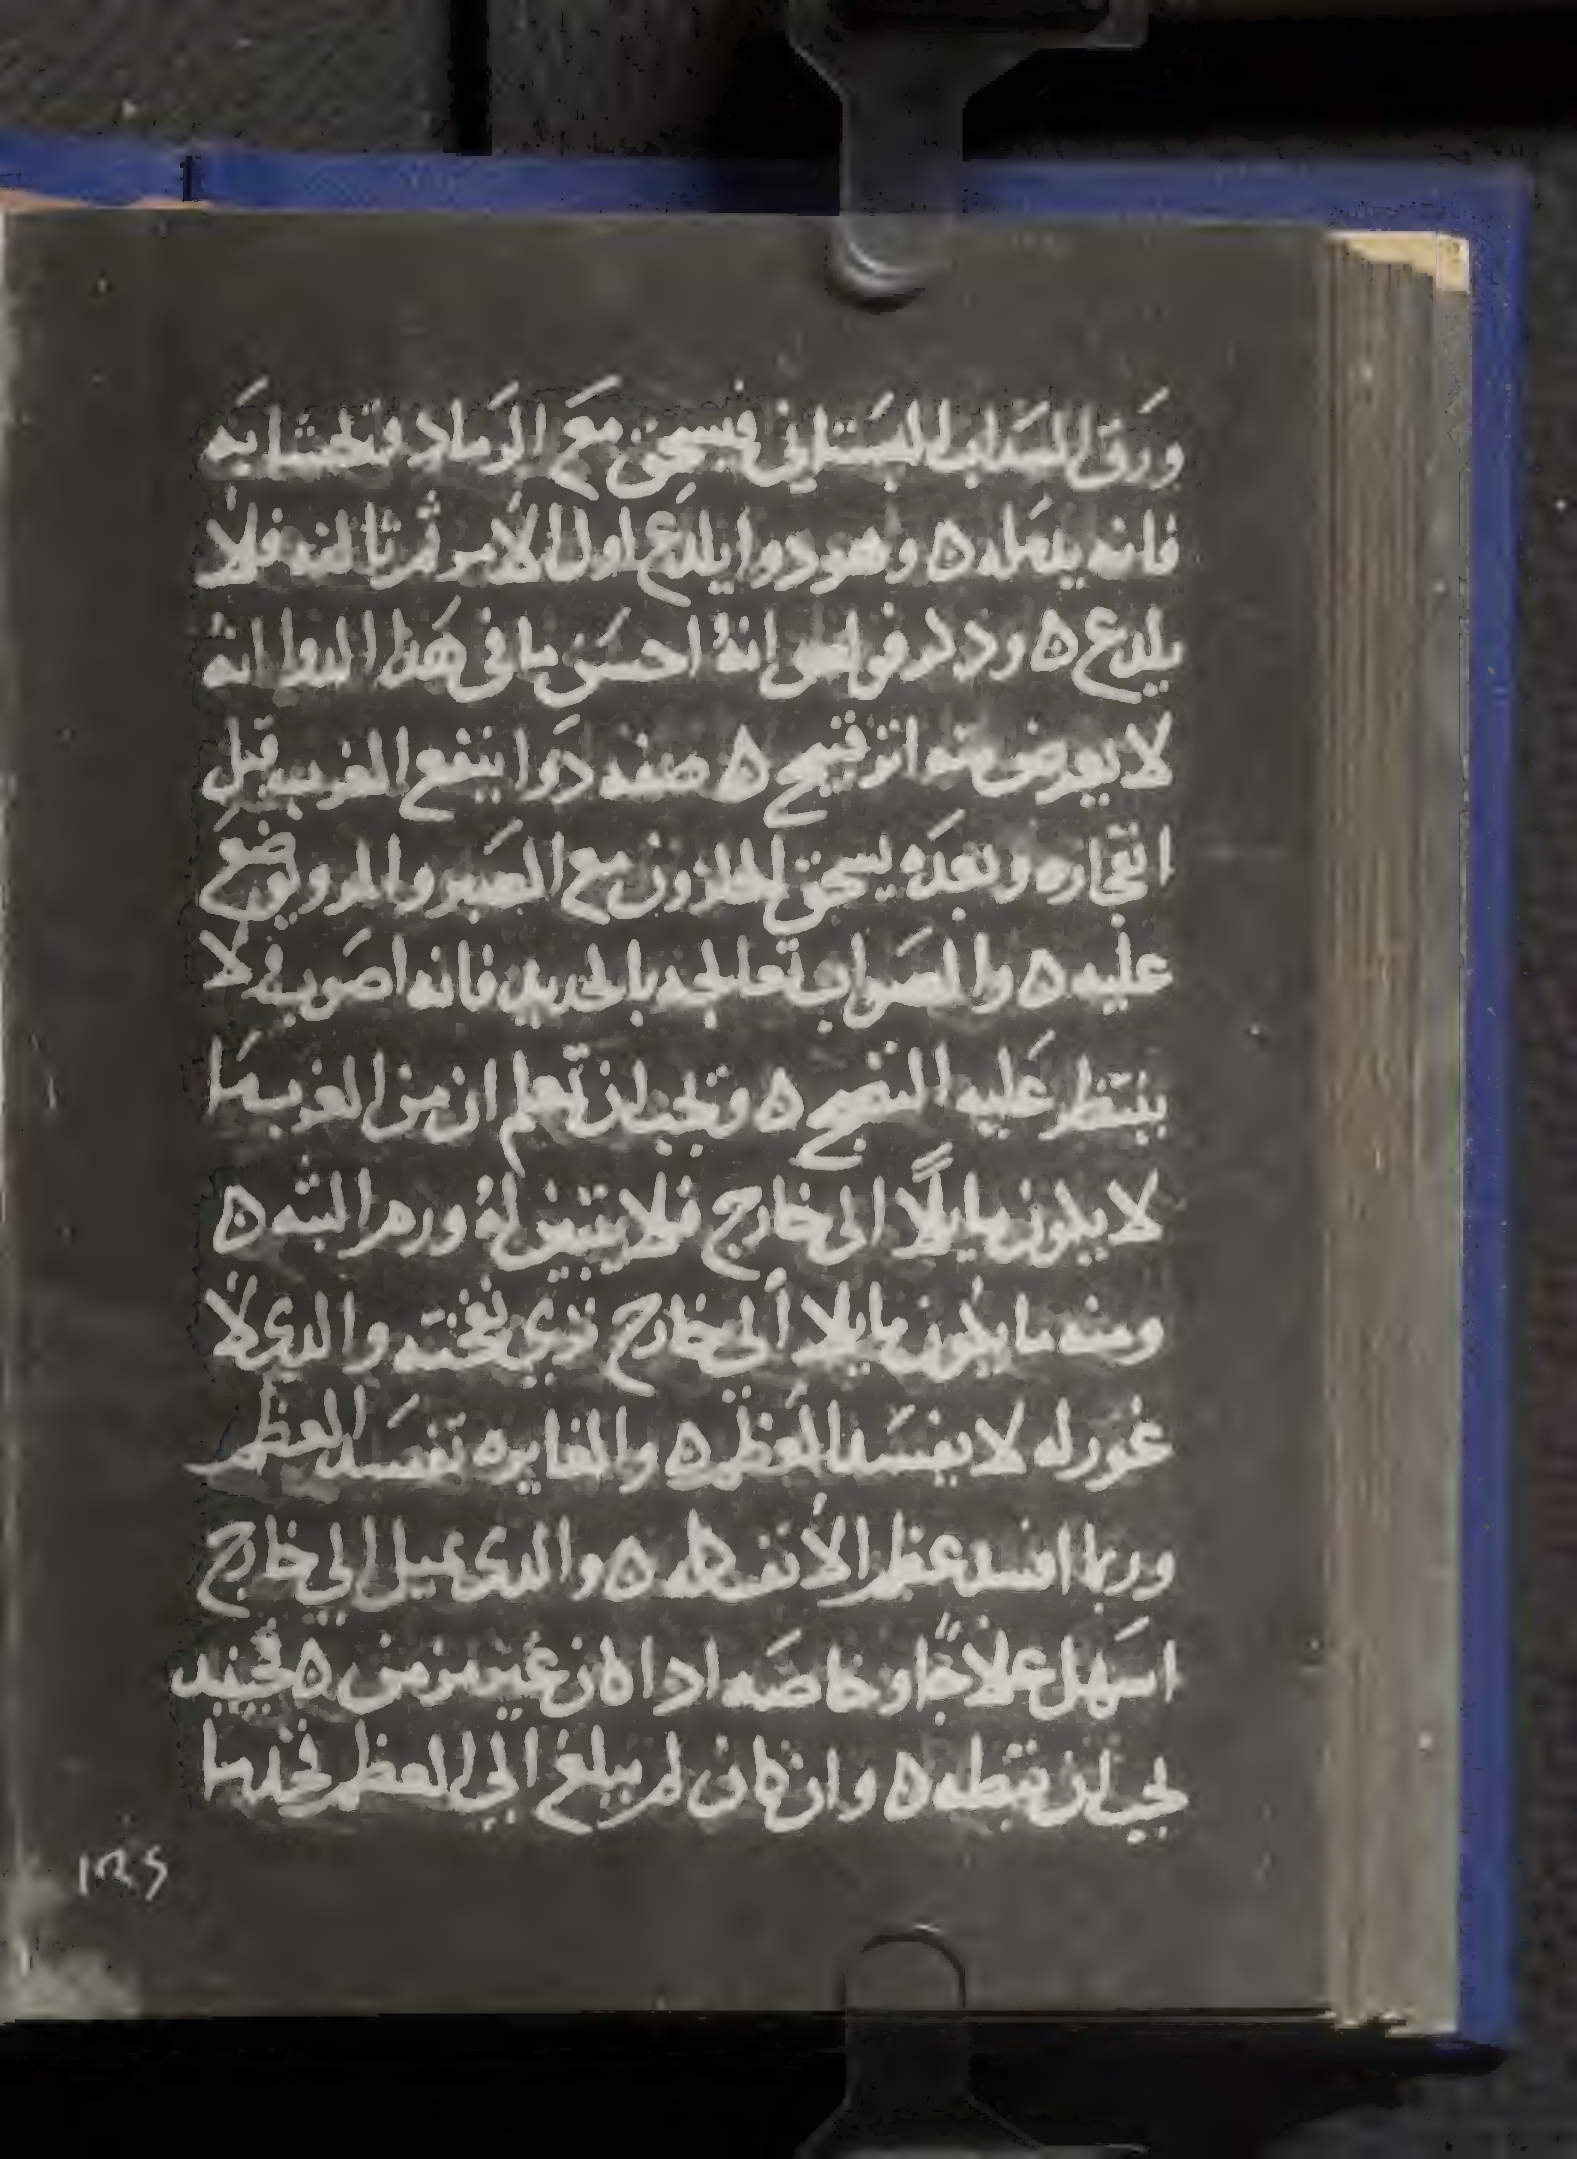 ورق السداب البستاني فيسحق مع الرماد فتحشا به
فانه يدمله ه وهو دوا يلدع اول الامر ثم ثالثه فلا
يلدع ه ودكر انه احسن ما في هذا الدوا انه
لا يعرض منه اثر قبيح ه صفه دوا ينفع الغرب قبل
انفجاره وبعده يسحق الحلزون مع الصبر والمر ويوضع
عليه ه والصواب تعالجه بالحديد فانه اصوب ولا
ينتظر عليه النضج ه ويجب ان تعلم ان من الغرب ما
لا يكون مايلًا الى خارج فلا يتبين له ورم البته ه
ومنه ما يكون مايلا ألى خارج والدى لا
غور له لا يفسد العظم ه والغايره تفسد العظم
وربما افسد عظم الأنف كله ه والدى يميل الي خارج
اسهل علاجًا وخاصه ادا كان غير مزمن ه فحينيد
يجب ان تبطه ه وان كان لم يبلغ الي العظم فخد ما